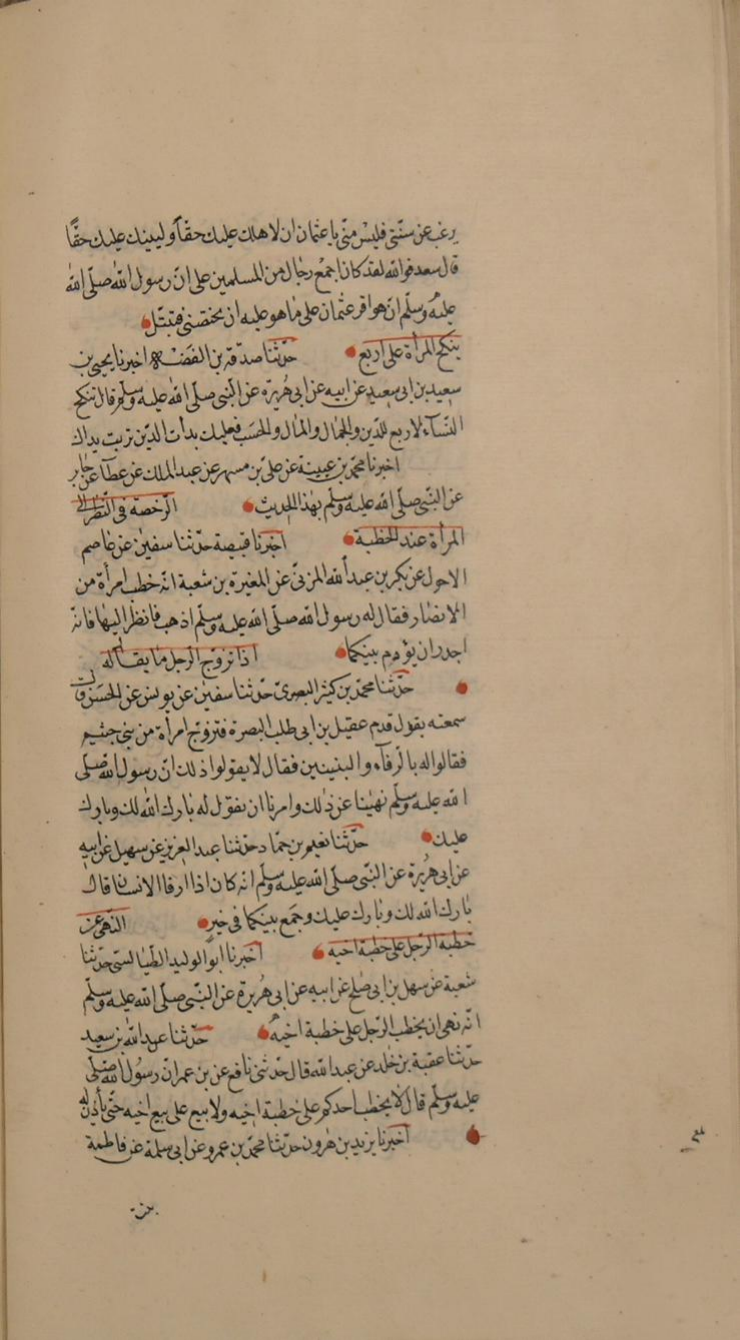 يرغب عن سنتي فليس مني يا عثمان ان لاهلك عليك حقاً ولعينك عليك حقاً
قال سعد فوالله لقد كان اجمع رجال من المسلمين على ان رسول الله صلّى الله
عليه وسلّم ان هو اقر عثمان على ما هو عليه ان نختصي فنتبتل
ينكح المرأة على اربع حدّثنا صدقة بن الفضل اخبرنا يحيى بن
سعيد بن ابى سعيد عن ابيه عن ابى هريرة عن النبى صلّى الله عليه وسلم قال تنكح
النسآء لاربع للدّين والجمال والمال والحسب فعليك بذات الدّين تربت يداك
اخبرنا محمّد بن عيينة عن علىّ بن مسهر عن عبد الملك عن عطآء عن جابر
عن النبّى صلّى الله عليه وسلّم بهذا الحديث الرّخصة فى النّظر الى
المرأة عند الخطبة اخبرنا قبيصة حدّثنا سفين عن عاصم
الاحول عن بكر بن عبد الله المزنىّ عن المغيرة بن شعبة انّه خطب امرأة من
الانصار فقال له رسول الله صلّى الله عليه وسلّم اذهب فانظر اليها فانه
اجدر ان يؤدم بينكما اذا تزوّج الرجل ما يقال له
حدّثنا محمّد بن كثير البصرىّ حدّثنا سفين عن يونس عن الحسن قال
سمعته يقول قدم عقيل بن ابى طلب البصرة فتزوّج امرأة من بنى جثيم
فقالوا له بالرّفآء والبنيين فقال لا يقولوا ذلك انّ رسول الله صلّى
الله عليه وسلّم نهينا عن ذلك وامرنا ان نقول له بارك الله لك وبارك
عليك حدّثنا نعيم بن حمّاد حدّثنا عبد العزيز عن سهيل عن ابيه
عن ابى هريرة عن النبّى صلّى الله عليه وسلّم انه كان اذا ارفا الانسان قال
بارك الله لك وبارك عليك وجمع بينكما فى خير النّهى عن
خطبة الرّجل على خطبة اخيه اخبرنا ابو الوليد الطّيالسىّ حدّثنا
شعبة عن سهل بن ابى صلح عن ابيه عن ابى هريرة عن النبّى صلّى الله عليه وسلّم
انّه نهى ان يخطب الرّجل على خطبة اخيه حدّثنا عبد الله بن سعيد
حدّثنا عقبة بن خلد عن عبد الله قال حدّثنى نافع عن بن عمر انّ رسول الله صلّى
عليه وسلّم قال لا يخطب احدكم على خطبة اخيه ولا بيع على بيع اخيه حتّى يأذن له
اخبرنا يزيد بن هرون حدّثنا محمّد بن عمرو عن ابى سلمة عن فاطمة